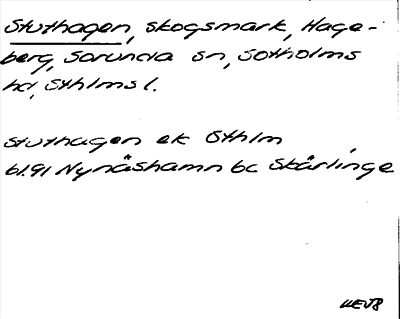 Stuthagen, skogsmark, Hage-
berg, Sorunda sn, Sotholms
hd, Sthlms l.
Stuthagen ek Sthlm
bl.91 Nynäshamn bc Skärlinge